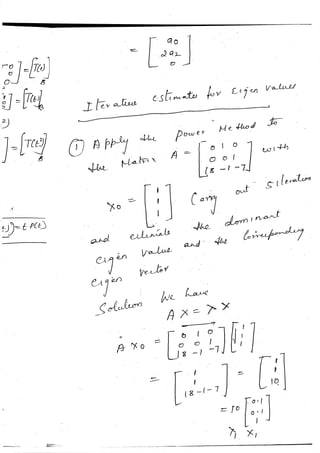 = [ a0
2a2
0 ]
0
0
0 ] = [T(t)]B
] = [T(t)]B
2)
] = [T(t²)]B
Iterative estimates for Eigen values
① Apply the Power Method to
the Matrix A = [ 0 1 0
0 0 1
18 -1 -7 ] with
x0 = [ 1
1
1 ] Carry out 5 iteration
= t P(t)
and estimate the dominant
eigen value and the corresponding
eigen vector
Solution We have
A X = λ X
A X0 = [ 0 1 0
0 0 1
18 -1 -7 ] [ 1
1
1 ]
= [ 1
1
18-1-7 ] = [ 1
1
10 ]
= 10 [ 0.1
0.1
1 ]
λ1 X1